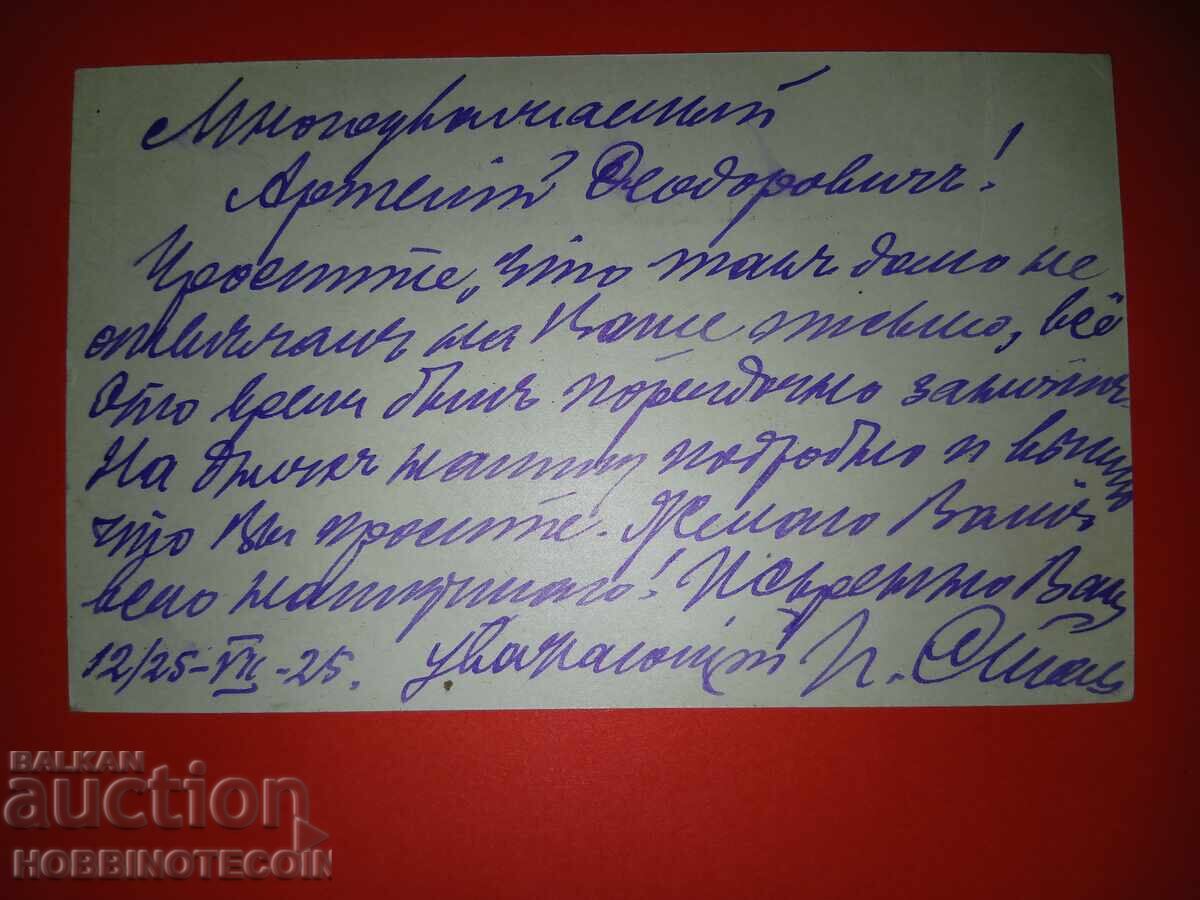 Многоуважаемый
Артемій Ѳеодоровичъ!
Простите, что такъ долго не
отвѣчалъ на Ваше письмо, всё
это время былъ порядочно занятъ.
На дняхъ напишу подробно и вышлю
что Вы просите. Желаю Вамъ
всего наилучшаго! Искренно Васъ
12/25-VII-25. уважающій П.
BALKAN
auction
HOBBINOTECOIN